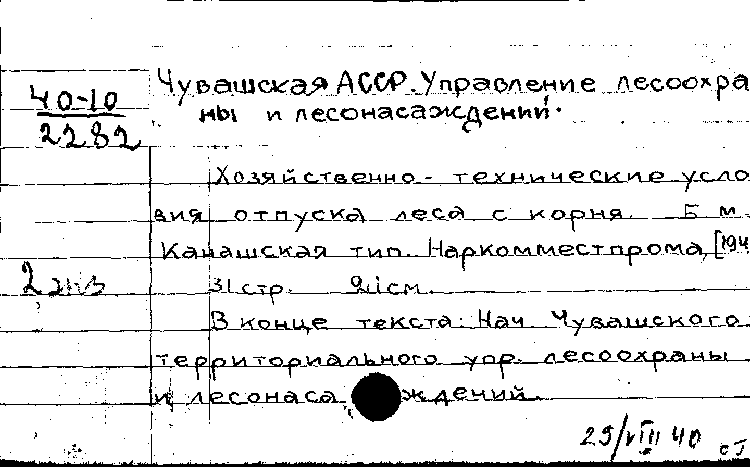 40-10
2282
Чувашская АССР. Управление лесоохра
ны и лесонасаждений.
Хозяйственно-технические усло
вия отпуска леса с корня. Б. м.
Канашская тип. Наркомместпрома, [194
31 стр. 21 см.
2 экз
В конце текста: Нач. Чувашского
территориального упр. лесоохраны
и лесонаса ждений.
29/VIII 40